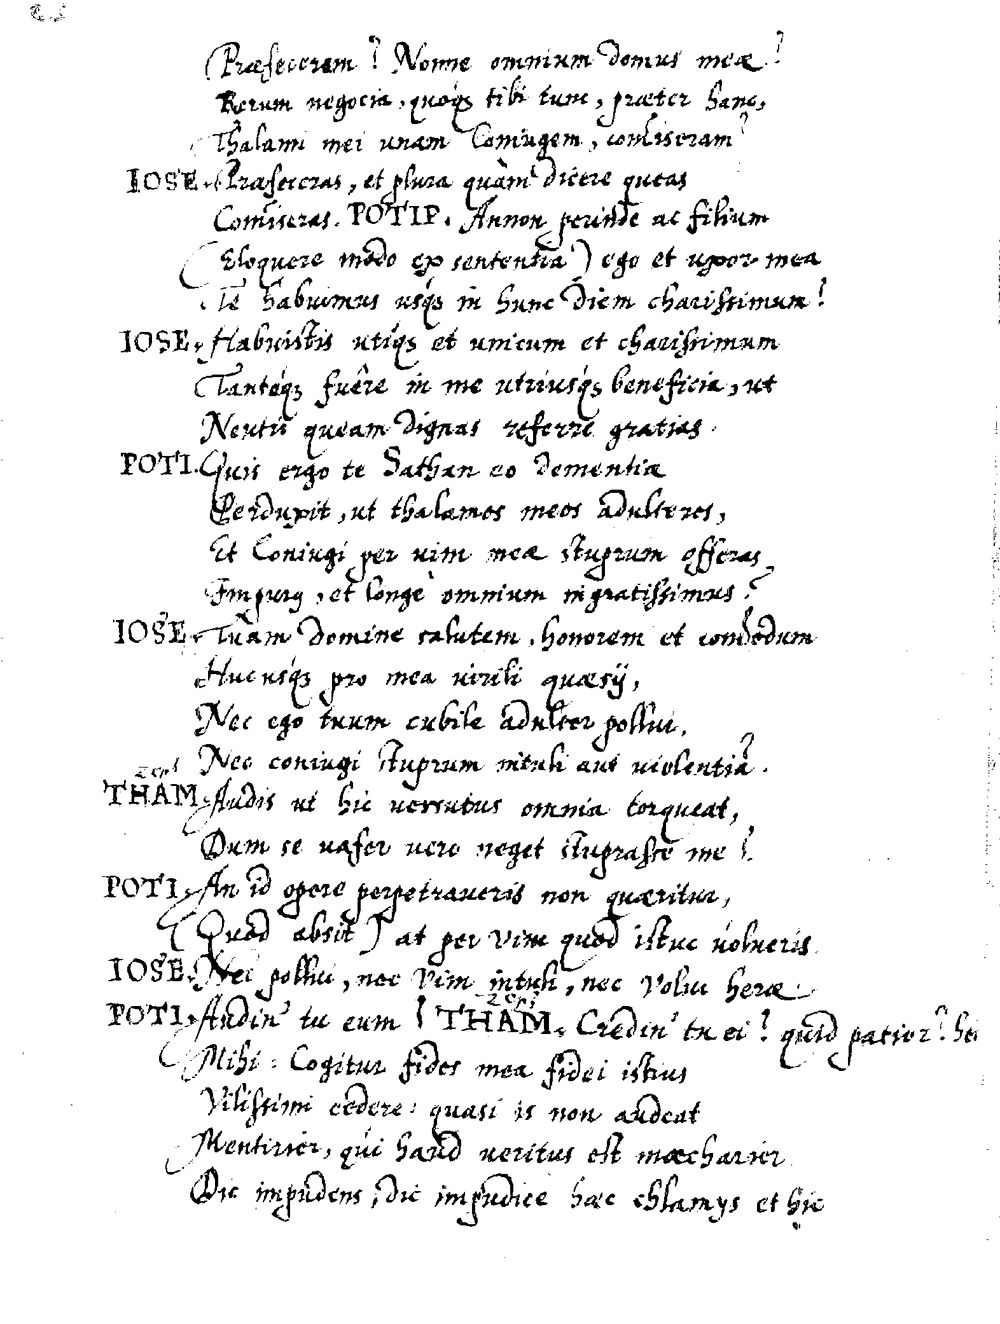 Præfeceram? Nonne omnium domus meæ?
Rerum negocia, quoqꝫ tibi tunc, præter hanc,
Thalami mei unam Coniugem, com̃iseram?
IOSE. Præfeceras, et plura quàm dicere queas
Com̃iseras. POTIP. Annon perinde ac filium
(Eloquere modo ex sententia) ego et uxor mea
Te habuimus usqꝫ in hunc diem charissimum?
IOSE. Habuistis utiqꝫ et unicum et charissimum
Tantáqꝫ fuêre in me utriusqꝫ beneficia, ut
Neutii queam dignas referre gratias.
POTI. Quis ergo te Sathan eo dementiæ
Perduxit, ut thalamos meos adulteres,
Et Coniugi per uim meæ stuprum offeras,
Impurę, et longè omnium ingratissimus?
IOSE. Tuam domine salutem, honorem et com̃odum
Hucusqꝫ pro mea uirili quæsij,
Nec ego tuum cubile adulter pollui,
Nec coniugi stuprum intuli aut uiolentiã.
Zeph
THAM. Audis ut hic uersutus omnia torqueat,
Dum se uafer uero neget stuprasse me?
POTI. An id opere perpetraueris non quæritur,
(Quod absit) at per vim quod istuc uolueris.
IOSE. Nec pollui, nec vim intuli, nec volui heræ.
Zeph
POTI. Audin' tu eum? THAM. Credin' tu ei? quid patior? hei
Mihi: Cogitur fides mea fidei istius
Vilissimi cedere: quasi is non audeat
Mentirier, qui haud ueritus est mœcharier
Dic impudens, dic impudice hæc chlamys et hic